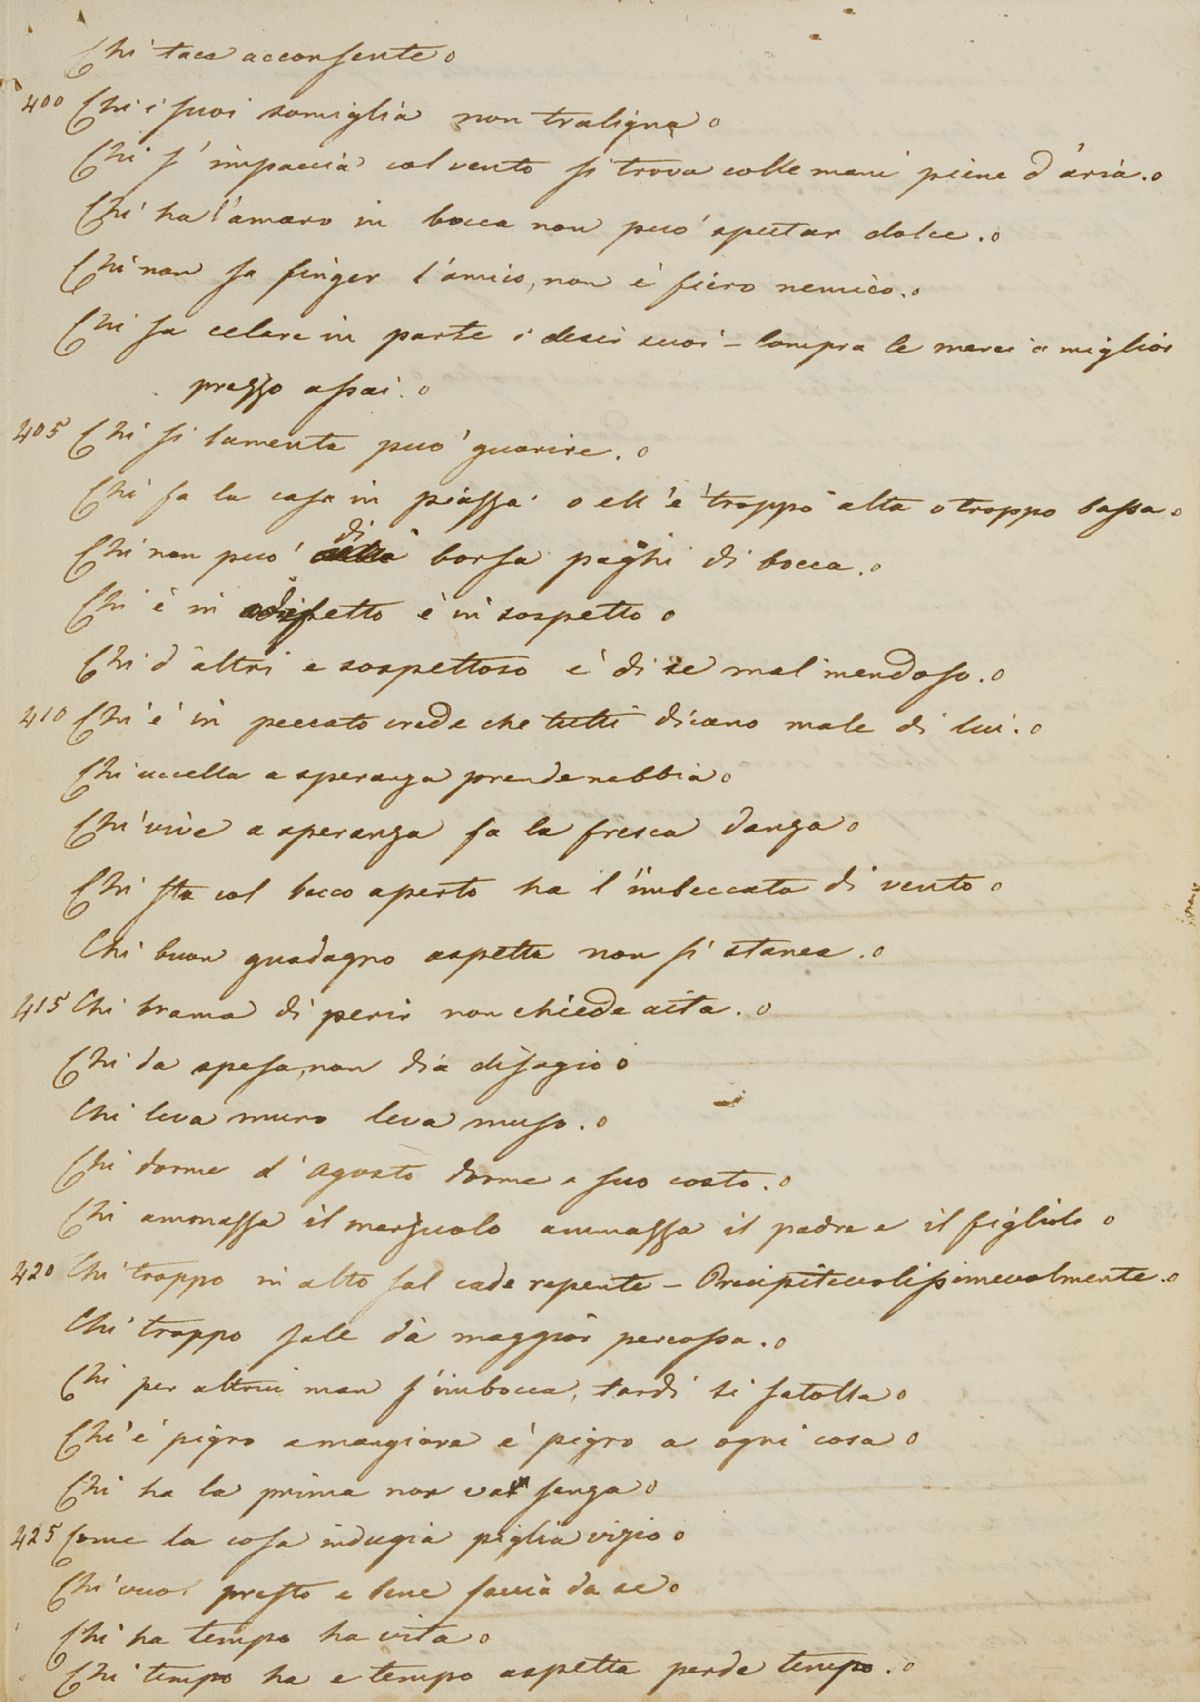 Chi tace acconsente o
400 Chi i suoi somiglia non traligna o
Chi s'impaccia col vento si trova colle mani piene d'aria. o
Chi ha l'amaro in bocca non può sputar dolce. o
Chi non sa finger l'amico, non è fiero nemico. o
Chi sa celare in parte i desir suoi – Compra le merci a miglior
prezzo assai. o
405 Chi si lamenta può guarire. o
Chi fa la casa in piazza o ell'è troppo alta o troppo bassa o
Chi non può di borsa paghi di bocca. o
Chi è in difetto è in sospetto o
Chi d'altri e sospettoso è di se mal mendoso. o
410 Chi è in peccato crede che tutti dicano male di lui. o
Chi uccella a speranza prende nebbia o
Chi vive a speranza fa la fresca danza o
Chi sta col becco aperto ha l'imbeccata di vento o
Chi buon guadagno aspetta non si stanca. o
415 Chi brama di perir non chiede aita. o
Chi da spesa, non dia disagio o
Chi leva muro leva muso. o
Chi dorme d'Agosto dorme a suo costo. o
Chi ammassa il marzuolo ammassa il padre e il figliolo o
420 Chi troppo in alto sal cade repente – Precipitevolissimevolmente. o
Chi troppo sale dà maggior percossa. o
Chi per altrui man s'imbocca, tardi si satolla o
Chi è pigro a mangiare è pigro a ogni cosa o
Chi ha la prima non va senza o
425 Come la cosa indugia piglia vizio o
Chi vuol presto e bene faccia da se o
Chi ha tempo ha vita o
Chi tempo ha e tempo aspetta perde tempo. o